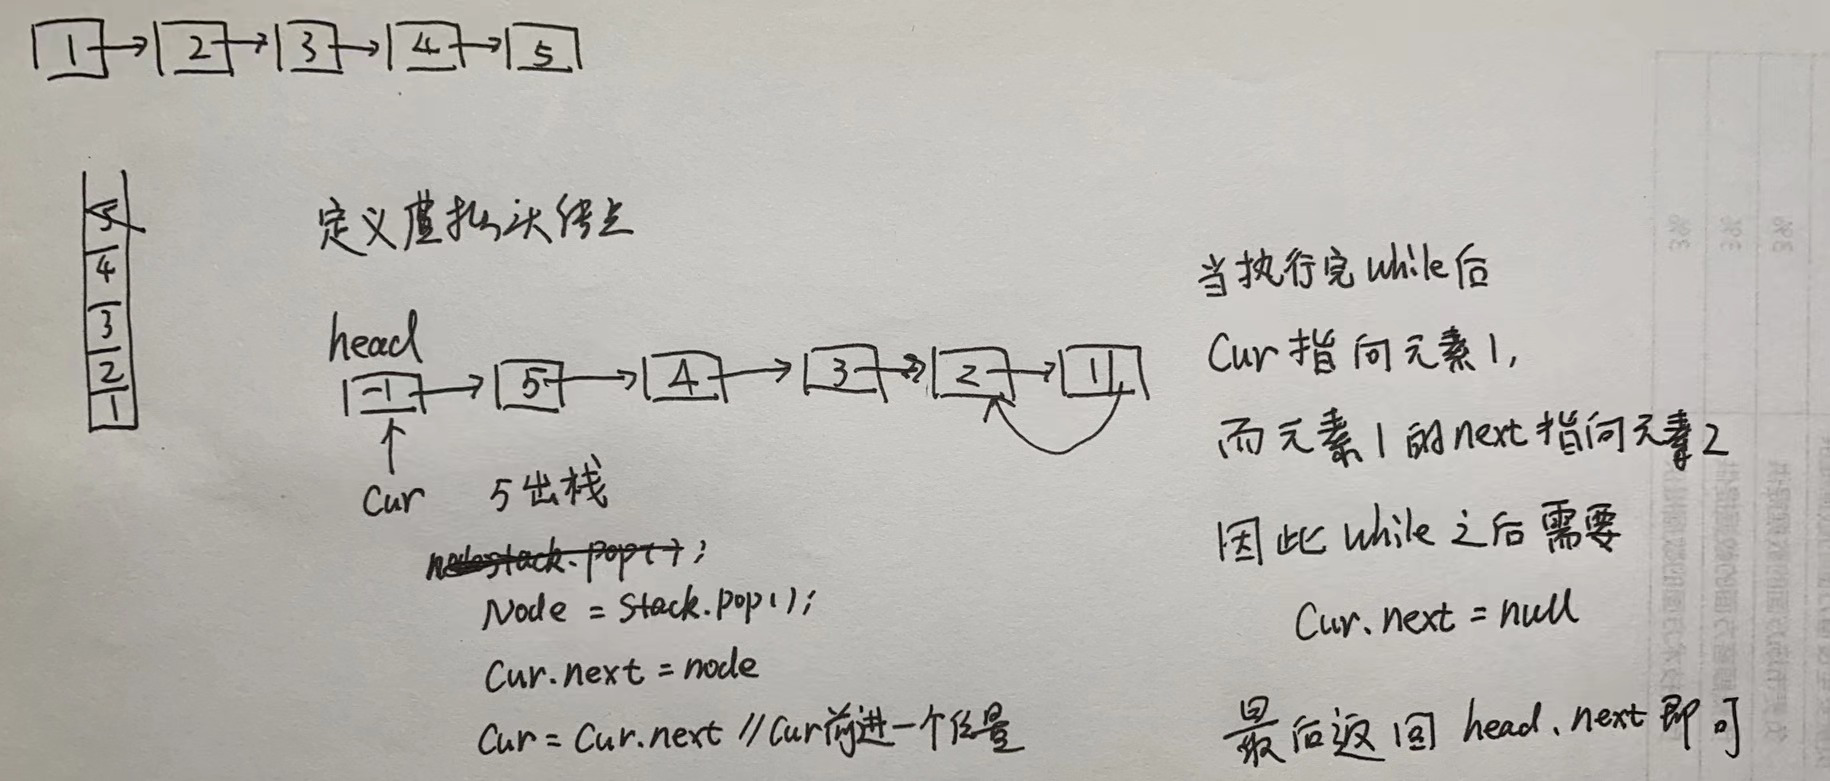 1 → 2 → 3 → 4 → 5
5
4
3
2
1
定义虚拟头结点
head
-1 → 5 → 4 → 3 → 2 → 1
Cur 5出栈
stack.pop();
Node = Stack.pop();
Cur.next = node
Cur = Cur.next //Cur前进一个位置
当执行完while后
Cur指向元素1,
而元素1的next指向元素2
因此while之后需要
Cur.next = null
最后返回 head.next即可